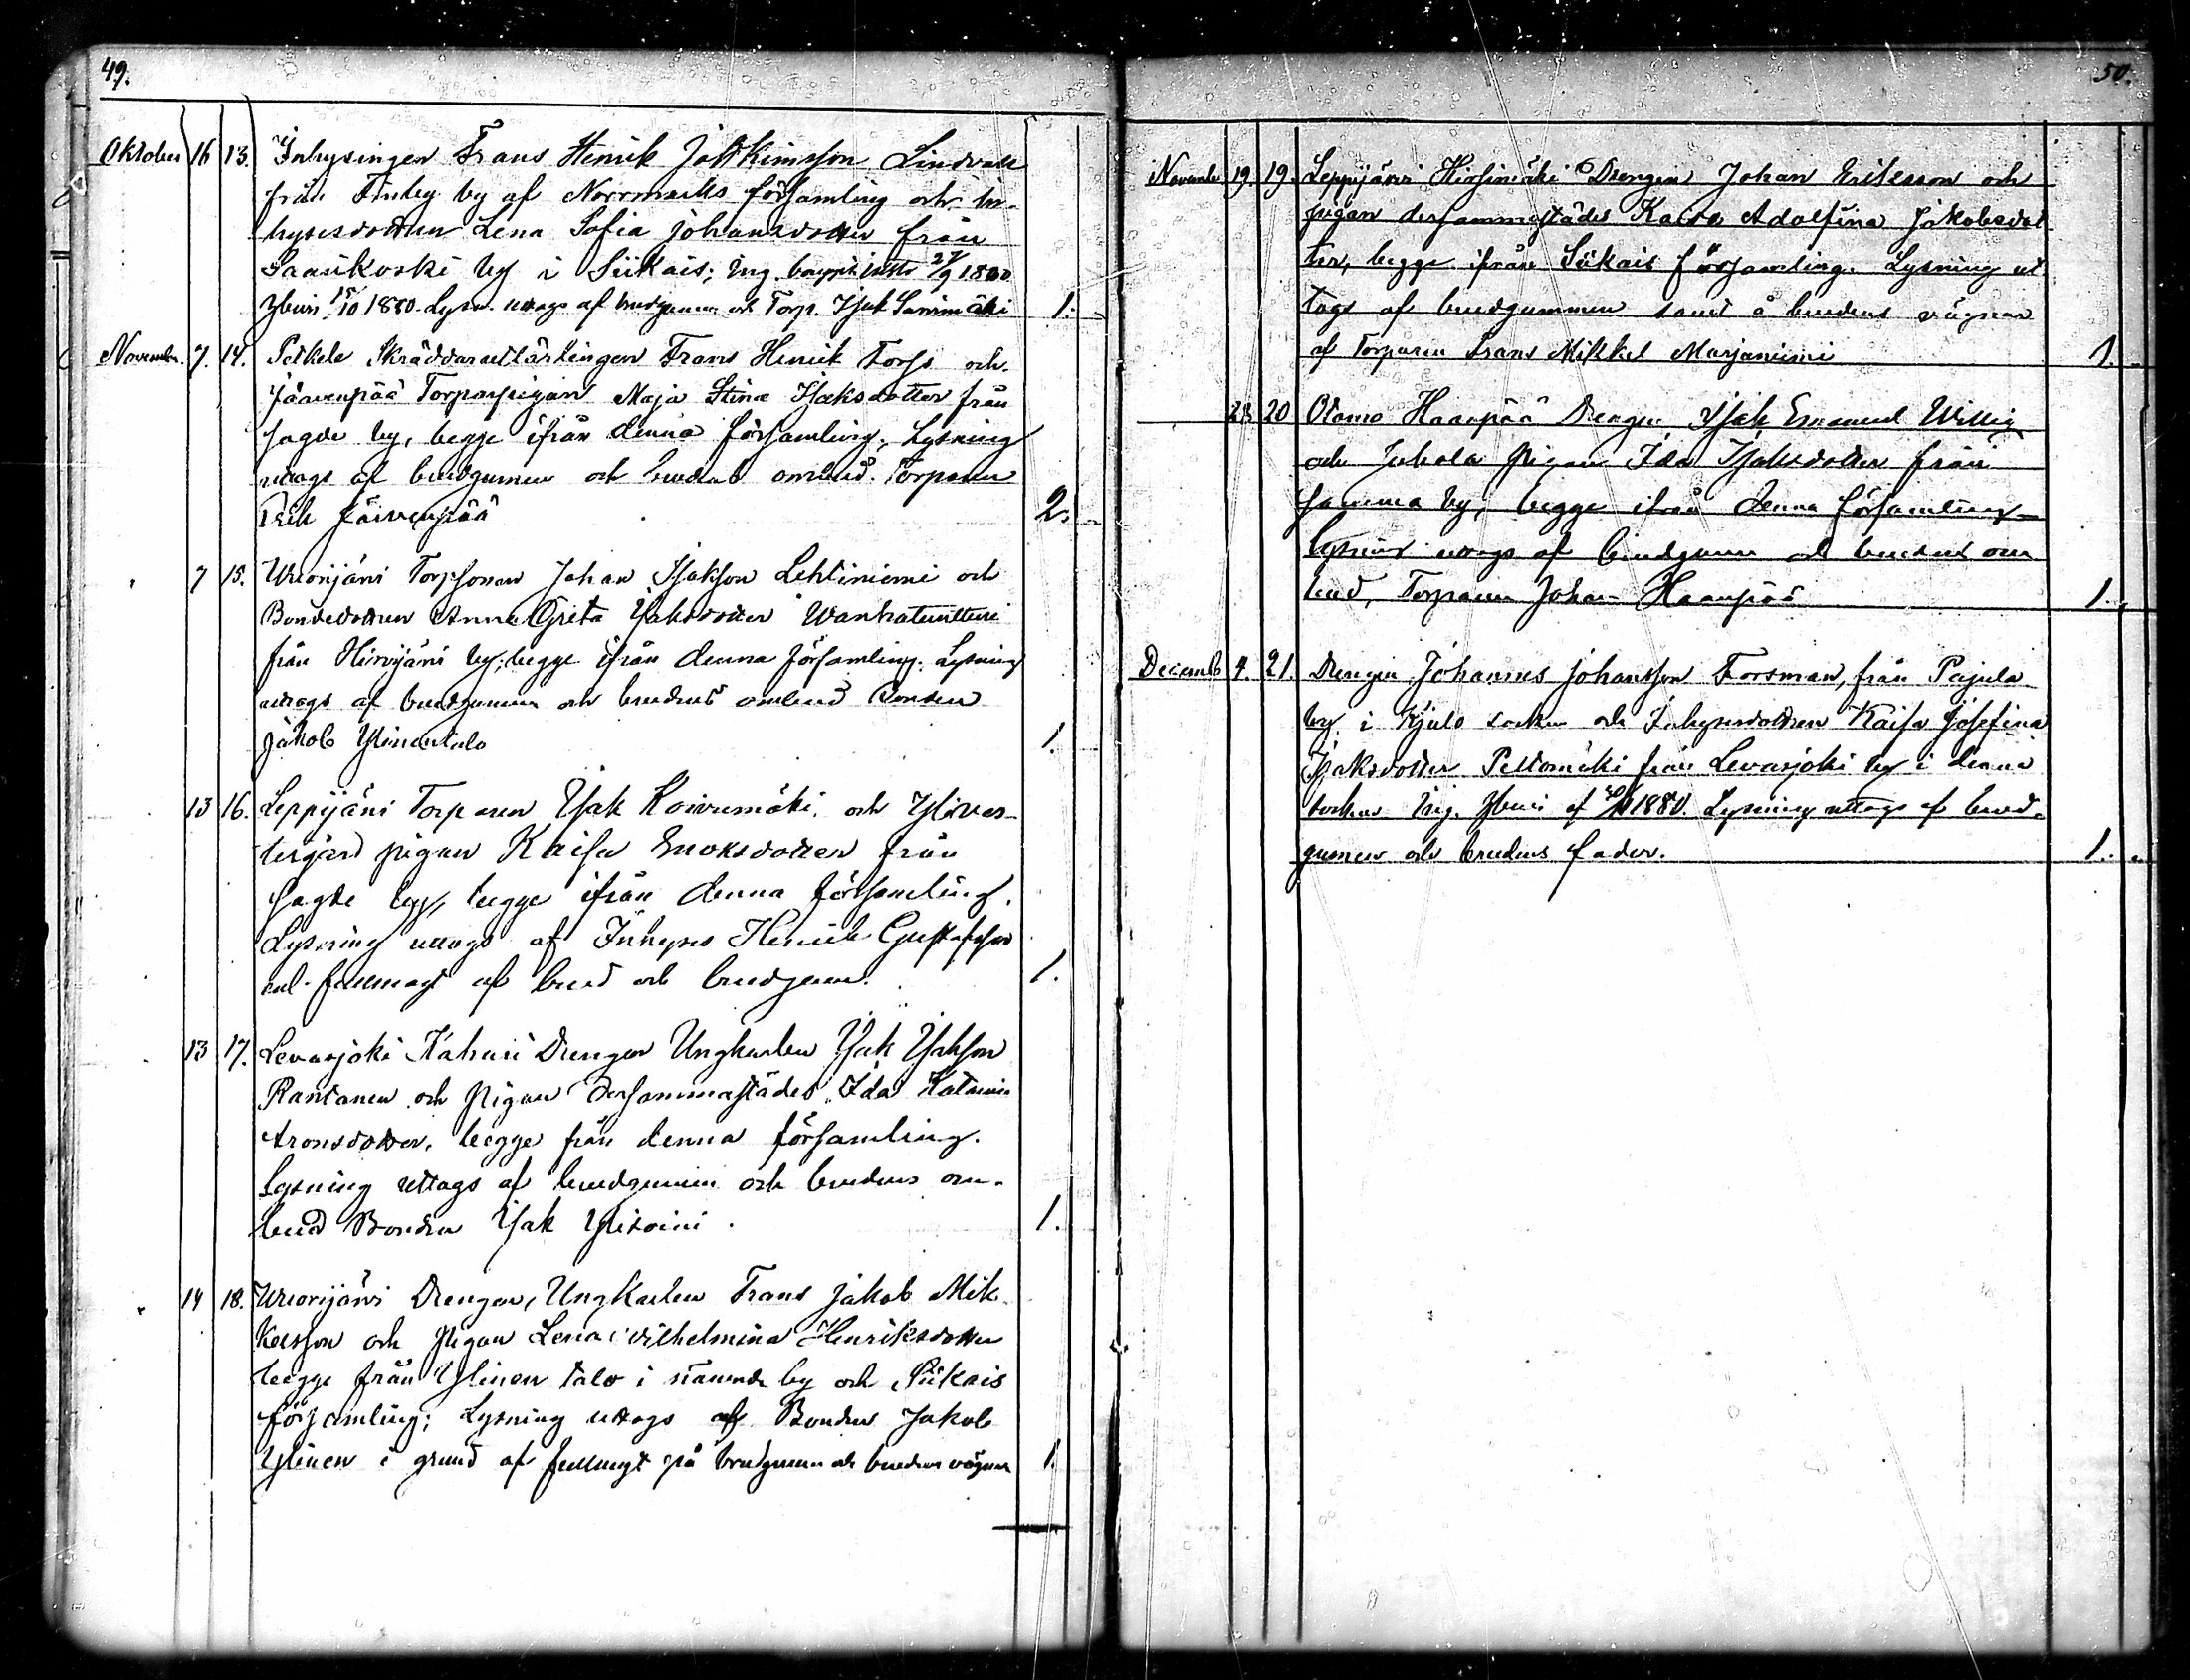 49.
Oktober 16 13. Inhysingen Frans Henrik Joakkimsson Lindvall
från Finby by af Norrmarks församling och In-
hysesdottren Lena Sofia Johansdotter från
Saarikoski by i Siikais; Ing. 27/9 1880
15/10 1880. Lysn. uttogs af brudgummen och Torp. Isak Sarimäki 1.
November 7. 14. Peikela Skräddarelärlingen Frans Henrik Forss och
Järvenpää Torparpigan Maja Stina Isaksdotter från
sagde by, begge ifrån denna församling. Lysning
uttogs af brudgumen och brudens ombud Torparen
Erik Järvenpää 2.
7 15. Wuorijärvi Torpsonen Johan Isaksson Lehtiniemi och
Bondedottren Anna Greta Isaksdotter
från Hirvijärvi by; begge ifrån denna församling. Lysning
uttogs af brudgumen och brudens ombud Bonden
Jakob Ylinentalo 1.
13 16. Leppijärvi Torparen Isak Koivumäki och Yliver-
tisgård pigan Kaisa Enoksdotter från
sagde by, begge ifrån denna församling.
Lysning uttogs af Inhyses Henrik Gustafsson
enl. fullmagt af brud och brudgum. 1.
13 17. Levasjoki Kahari Drengen Ungkarlen Isak Isaksson
Rantanen och Pigan dersammastädes Ida Katarina
Aronsdotter, begge från denna församling.
Lysning uttogs af brudgumen och brudens om-
bud Bonden Isak 1.
14 18. Wuorijärvi Drengen, Ungkarlen Frans Jakob Mik-
kelsson och Pigan Lena Vilhelmina Henriksdotter
begge från Ylinen talo i nämnde by och Siikais
församling; Lysning uttogs af Bonden Jakob
Ylinen i grund af fullmagt på brudgumens och brudens vägnar 1.
50.
November 19. 19. Leppijärvi Hirsimäki Drengen Johan Eriksson och
pigan dersammastädes Kaisa Adolfina Jakobsdot-
ter, begge ifrån Siikais församling. Lysning ut
togs af brudgummen samt å brudens vägnar
af Torparen Frans Mikkel Marjaniemi 1.
28 20 Otamo Haanpää Drengen Isak Emanuel Willig
och Juhola Pigan Ida Isaksdotter från
samma by, begge ifrån denna församling
lysning uttogs af brudgumen och brudens om
bud, Torparen Johan Haanpää 1.
Decemb 4. 21. Drengen Johannes Johansson Forsman, från Pajula
by i Kjulo socken och Inhysesdottren Kaisa Josefina
Isaksdotter Peltomäki från Levasjoki by i denna
socken Ing. 1880. Lysning uttogs af brud-
gumen och brudens fader. 1.